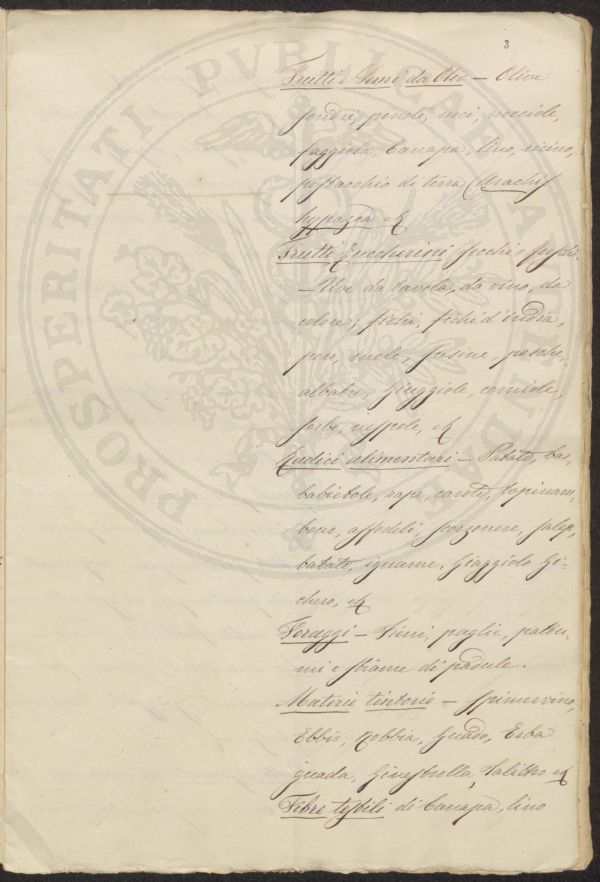 3
Frutti e Semi da Olio – Olive
pinoli, noci, nocciole,
faggiola, Canapa, lino, ricino,
pistacchio di terra (Arachis
hypogea &
Frutti Zuccherini secchi o freschi.
– Uve da tavola, da vino, da
colore; fichi, fichi d'India,
pere, mele, susine, pesche,
albatre, Giuggiole, corniole,
sorbe, nespole, &
Radici alimentari – Patate, bar-
babietole, rape, carote, topinam-
bour, affodeli, scorzonere, salep,
batate, igname, Giaggiolo Gi-
chero, &
Foraggi – Fieni, paglie, pattu-
mi e stiame di padule.
Materie tintorie – spinervino,
Ebbio, Robbia, Guado, Erba
guada, Ginestrella, &
Fibre tessili di Canapa, lino
PROSPERITATI PVBLICAE AVGENDAE